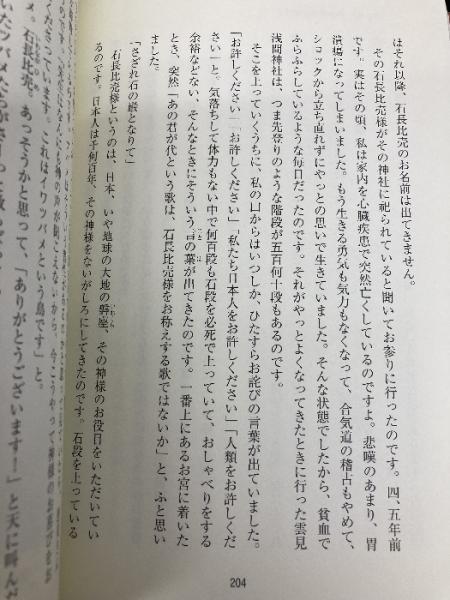 はそれ以降、石長比売のお名前は出てきません。
その石長比売様がその神社に祀られていると聞いてお参りに行ったのです。四、五年前
です。実はその頃、私は家内を心臓疾患で突然亡くしているのですよ。悲嘆のあまり、胃
潰瘍になってしまいました。もう生きる勇気も気力もなくなって、合気道の稽古もやめて、
ショックから立ち直れずにやっとの思いで生きていました。そんな状態でしたから、貧血で
ふらふらしているような毎日だったのです。それがやっとよくなってきたときに行った雲見
浅間神社は、つま先登りのような階段が五百何十段もあるのです。
そこを上っていくうちに、私の口からはいつしか、ひたすらお詫びの言葉が出ていました。
「お許しください」「お許しください」「私たち日本人をお許しください」「人類をお許しくだ
さい―と、気落ちして体力もない中で何百段も石段を必死で上っていて、おしゃべりをする
余裕などない、そんなときにそういう言の葉が出てきたのです。一番上にあるお宮に着いた
とき、突然「あの君が代という歌は、石長比売様をお称えする歌ではないか」と、ふと思い
ました。
「さざれ石の巌となりて」
石長比売様というのは、日本、いや地球の大地の磐座、その神様のお役目をいただいてい
るのです。日本人は千何百年、その神様をないがしろにしてきたのです。石段を上っている
204
これはイワツバメという鳥です」と。
メ。石長比売。あっそうかと思って、「ありがとうございます！」と天に叫んだ